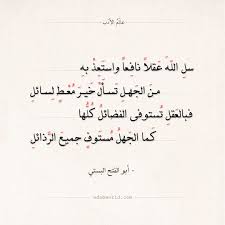 عالم الأدب
سلِ اللهَ عَقلاً نافِعاً واستَعِذْ بهِ
منَ الجَهلِ تَسألْ خَيرَ مُعْطٍ لِسائلِ
فبالعَقلِ تُستوفى الفضائلُ كُلُّها
كما الجَهلُ مُستَوفٍ جميعَ الرَّذائلِ
- أبو الفتح البستي
adabworld.com